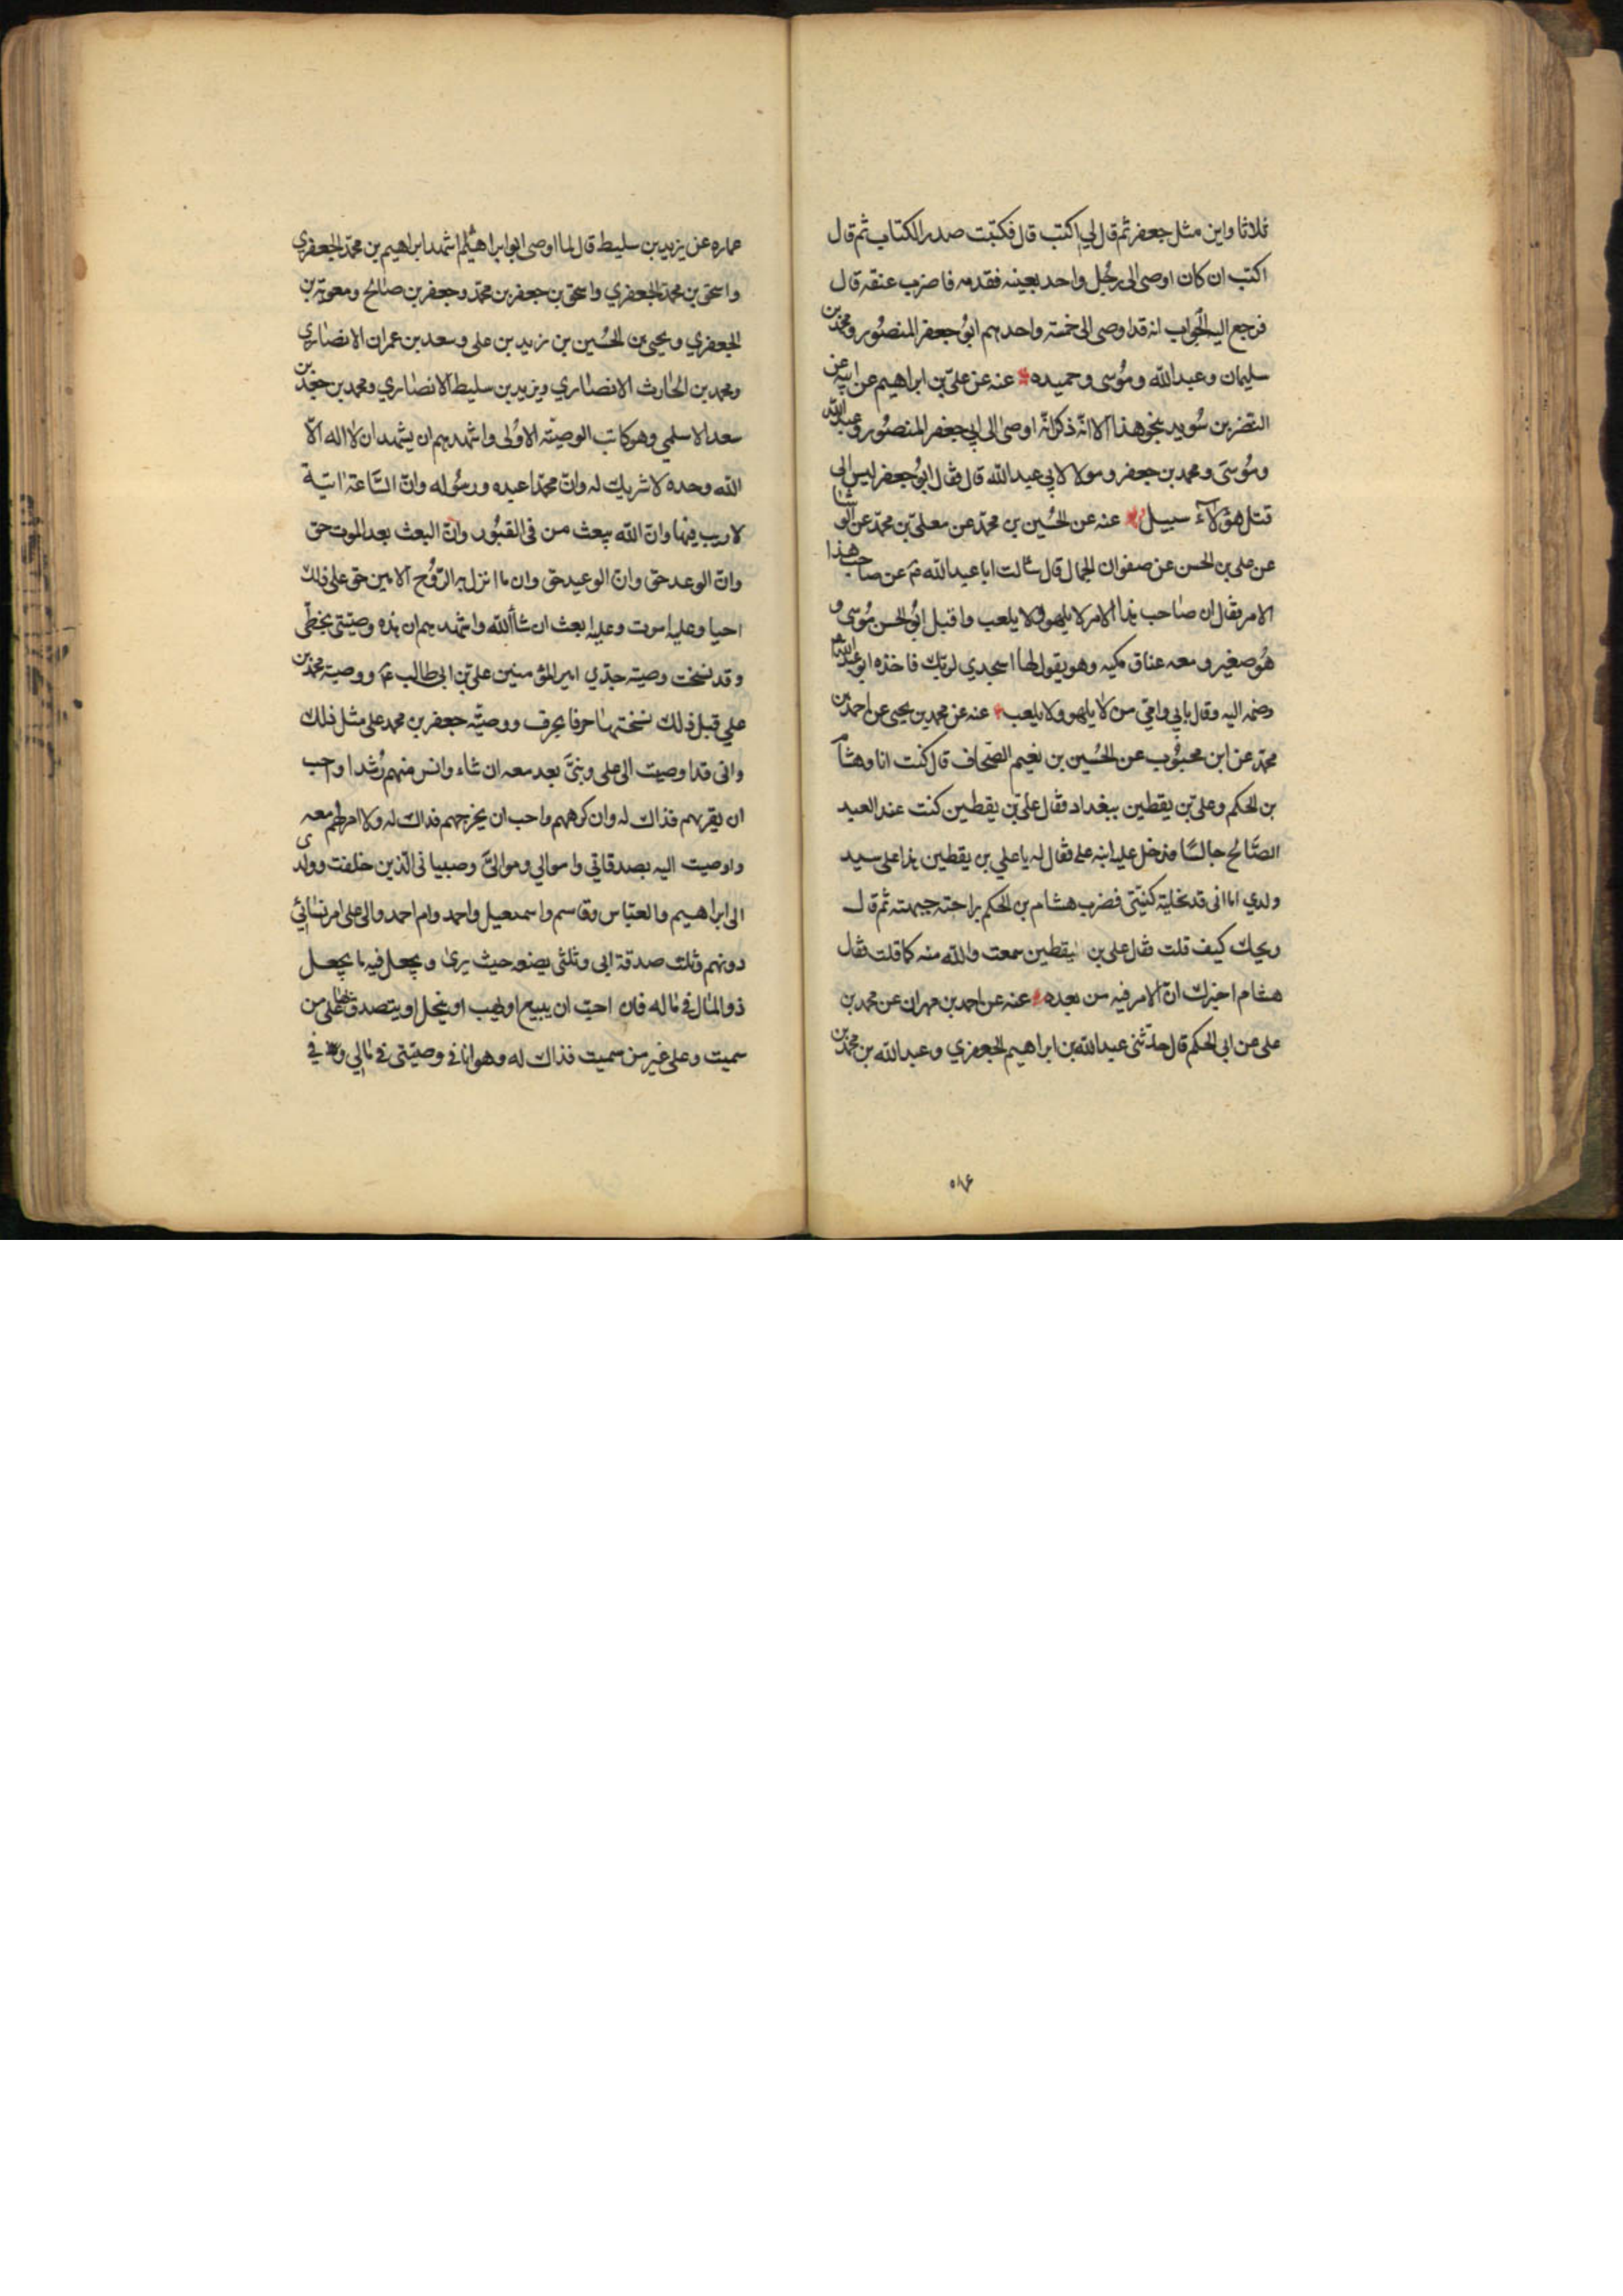 ثلاثا واين مثل جعفر ثم قال لي اكتب قال فكتبت صدر الكتاب ثم قال
اكتب ان كان اوصى الى رجل واحد بعينه فقدمه فاضرب عنقه قال
فرجع اليه الجواب انه قد اوصى الى خمسة واحدهم ابو جعفر المنصور ومحمد بن
سليمان وعبد الله وموسى وحميده عنه عن علي بن ابراهيم عن ابيه عن
النضر بن سويد بنحو هذا الا انه ذكر انه اوصى الى ابي جعفر المنصور وعبد الله
وموسى ومحمد بن جعفر ومولا لابي عبد الله قال فقال ابو جعفر ليس الى
قتل هؤلاء سبيل عنه عن الحسين بن محمد عن معلى بن محمد عن الوشا
عن علي بن الحسن عن صفوان الجمال قال سالت ابا عبد الله ع عن صاحب هذا
الامر فقال ان صاحب هذا الامر لا يلهو ولا يلعب واقبل ابو الحسن موسى و
هو صغير ومعه عناق مكيه وهو يقول لها اسجدي لربك فاخذه ابو عبد الله
وضمه اليه وقال بابي وامي من لا يلهو ولا يلعب عنه عن محمد بن يحيى عن احمد بن
محمد عن ابن محبوب عن الحسين بن نعيم الصحاف قال كنت انا وهشام
بن الحكم وعلي بن يقطين ببغداد فقال علي بن يقطين كنت عند العبد
الصالح جالسا فدخل عليه ابنه علي فقال له يا علي بن يقطين هذا علي سيد
ولدي اما اني قد نحلته كنيتي فضرب هشام بن الحكم براحته جبهته ثم قال
ويحك كيف قلت فقال علي بن يقطين سمعت والله منه كما قلت فقال
هشام اخبرك ان الامر فيه من بعده عنه عن احمد بن مهران عن محمد بن
علي عن ابي الحكم قال حدثني عبد الله بن ابراهيم الجعفري وعبد الله بن محمد بن
٥٨٤
عماره عن يزيد بن سليط قال لما اوصى ابو ابراهيم اشهد ابراهيم بن محمد الجعفري
واسحق بن محمد الجعفري واسحق بن جعفر بن محمد وجعفر بن صالح ومعوية بن
الجعفري ويحيى بن الحسين بن زيد بن علي وسعد بن عمران الانصاري
ومحمد بن الحارث الانصاري ويزيد بن سليط الانصاري ومحمد بن جعفر بن
سعد الاسلمي وهو كاتب الوصية الاولى واشهدهم ان يشهد ان لا اله الا
الله وحده لا شريك له وان محمدا عبده ورسوله وان الساعة اتية
لا ريب فيها وان الله يبعث من في القبور وان البعث بعد الموت حق
وان الوعد حق وان الوعيد حق وان ما انزل به الروح الامين حق على ذلك
احيا وعليه اموت وعليه ابعث ان شاء الله واشهدهم ان هذه وصيتي بخطي
وقد نسخت وصية جدي امير المؤمنين علي بن ابي طالب ع ووصية محمد بن
علي قبل ذلك نسختها حرفا بحرف ووصية جعفر بن محمد على مثل ذلك
واني قد اوصيت الى علي وبني بعد معه ان شاء وانس منهم رشدا واحب
ان يقرهم فذاك له وان كرههم واحب ان يخرجهم فذاك له ولا امر لهم معه
واوصيت اليه بصدقاتي واموالي وموالي وصبياني الذين خلفت وولدى
الى ابراهيم والعباس وقاسم واسمعيل واحمد وام احمد والى علي امر نسائي
دونهم وثلث صدقة ابي وثلثي يضعه حيث يرى ويجعل فيه ما يجعل
ذو المال في ماله فان احب ان يبيع او يهب او ينحل او يتصدق بها على من
سميت وعلى غير من سميت فذاك له وهو انا في وصيتي في مالي وفي